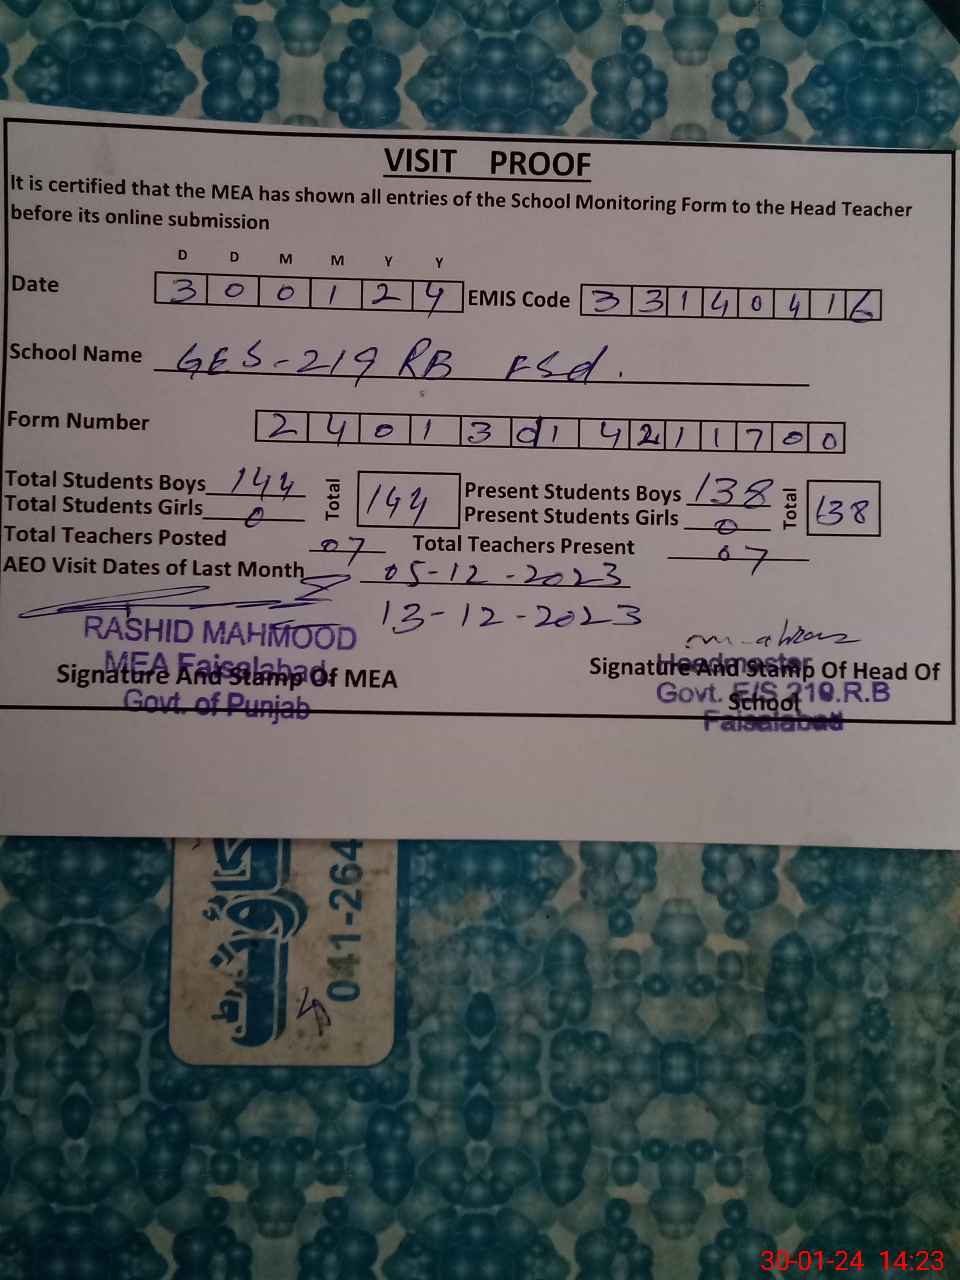 VISIT PROOF
It is certified that the MEA has shown all entries of the School Monitoring Form to the Head Teacher
before its online submission
D D M M Y Y
Date 3 0 0 1 2 4 EMIS Code 3 3 1 4 0 4 1 6
School Name GES-219 RB FSd.
Form Number 2 4 0 1 3 0 1 4 2 1 1 7 0 0
Total Students Boys 144 Total 144 Present Students Boys 138 Total 138
Total Students Girls 0 Present Students Girls 0
Total Teachers Posted 07 Total Teachers Present 07
AEO Visit Dates of Last Month 05-12-2023
13-12-2023
RASHID MAHMOOD
MEA Faisalabad
Signature And Stamp Of MEA
Govt. of Punjab
Headmaster
Signature And Stamp Of Head Of
School
Govt. E/S 219.R.B
Faisalabad
041-264
30-01-24 14:23